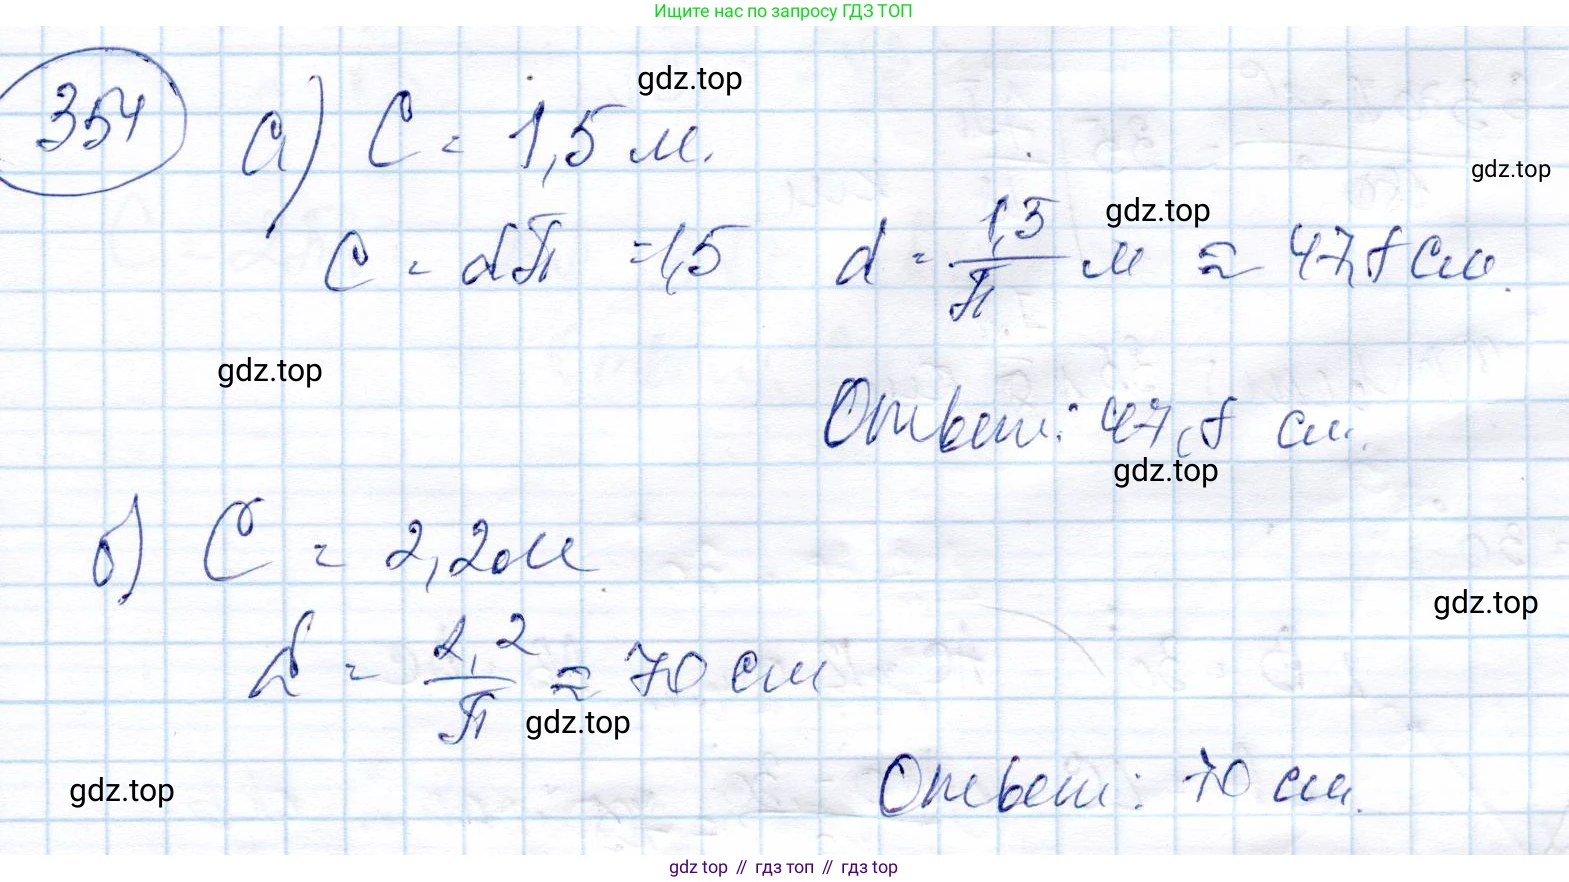 Ищите нас по запросу ГДЗ ТОП
354 а) C = 1,5 м.
gdz.top
gdz.top
C = dπ = 1,5 d = 1,5/π м ≈ 47,8 см.
gdz.top
gdz.top
Ответ: 47,8 см.
gdz.top
б) C = 2,2 м
gdz.top
d = 2,2/π ≈ 70 см
gdz.top
gdz.top
Ответ: 70 см.
gdz top // гдз топ // гдз top